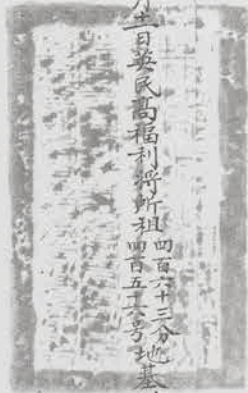 月十一日英民高福利将所租四百六十三分
四百五十六号地基